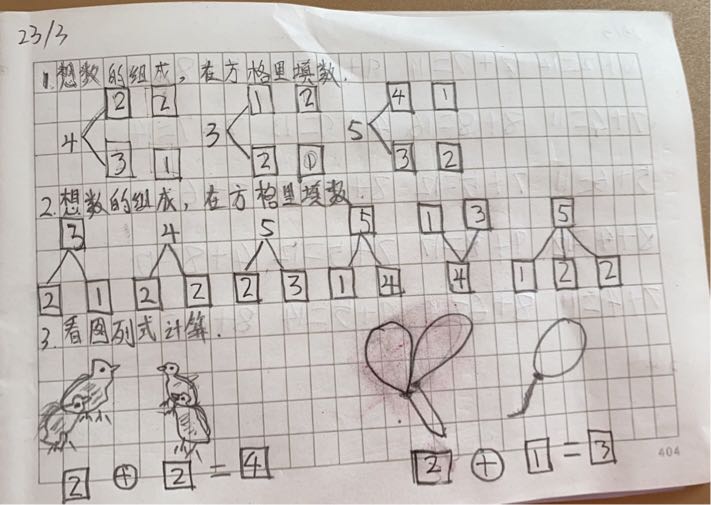 23/3
1.想数的组成,在方格里填数.
2 2 1 2 4 1
4 3 5
3 1 2 1 3 2
2.想数的组成,在方格里填数.
3 4 5 5 1 3 5
2 1 2 2 2 3 1 4 4 1 2 2
3.看图列式计算.
2 + 2 = 4 2 + 1 = 3
404